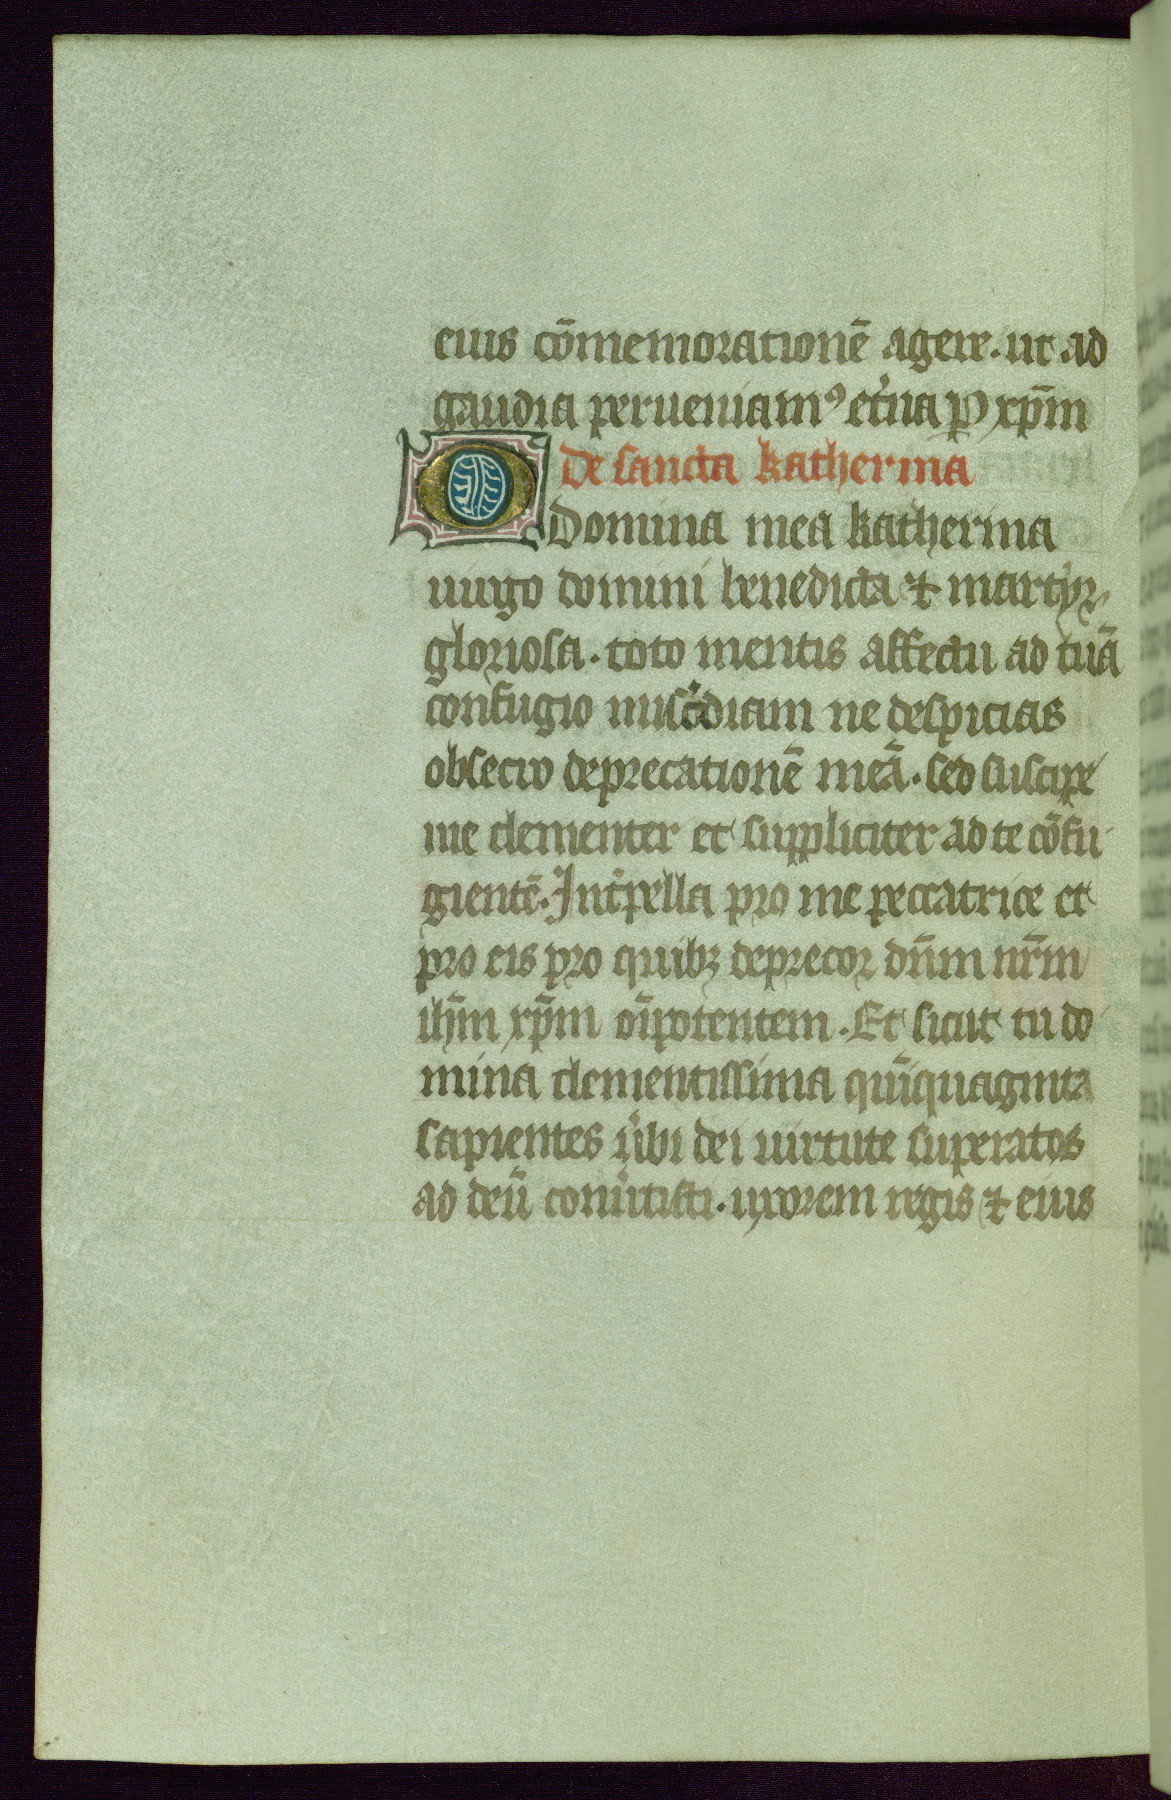 eius cōmemorationē agere. ut ad
gaudia perueniamꝰ et̾na ꝑ xp̄m
De sancta katherina
O Domina mea katherina
uirgo domini benedicta ⁊ martyr
gloriosa. toto mentis affectu ad tuā
confugio mis̾c̾diam ne despicias
obsecro deprecationē meā. sed suscipe
me clementer et suppliciter ad te cōfu
gientē. Int̾pella pro me peccatrice et
pro eis pro quibꝫ deprecor dn̄m nr̄m
ih̄m xp̄m oīpotentem. Et sicut tu do
mina clementissima quīquaginta
sapientes u̾bi dei uirtute superatos
ad deū conu̾tisti. uxorem regis ⁊ eius